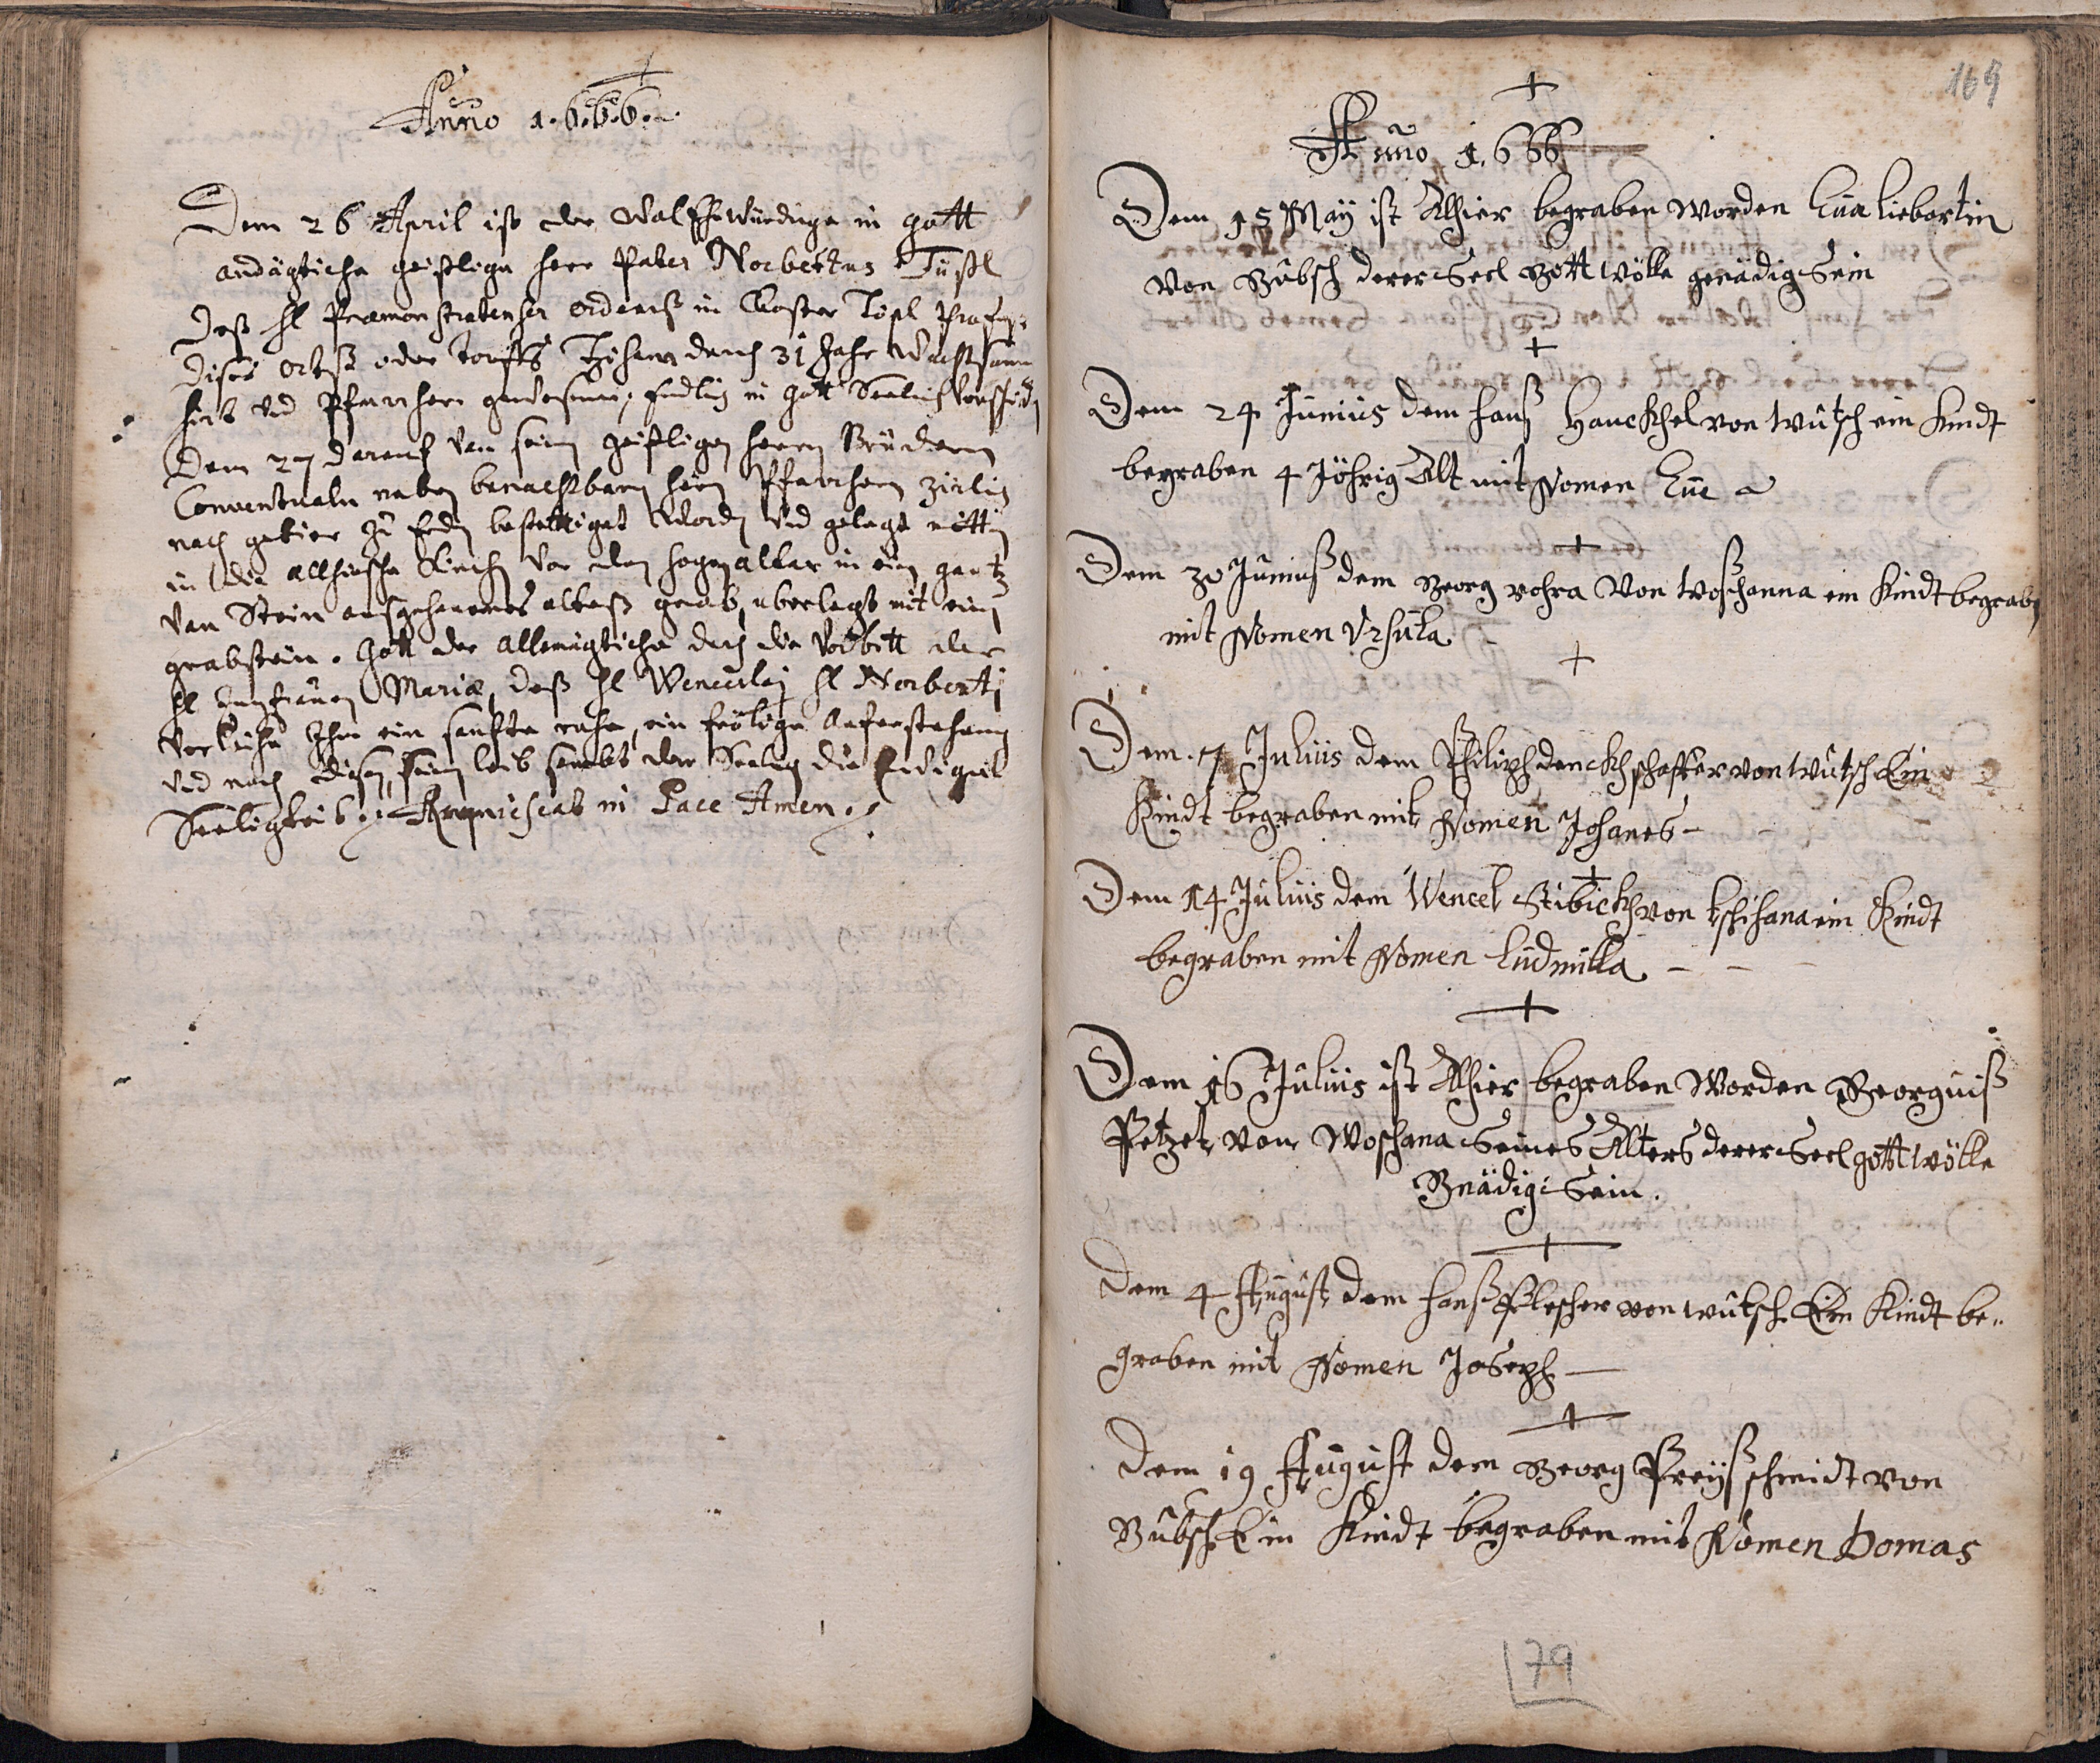 Anno 1.6.6.6.
Dem 26 April ist der WolEhrwürdige in gott
andägtiche geistlige herr Pater Norbertus Tüßl
deß hl Præmonstratenser ordenß in Closter Töpl Profeß:
dises ortß oder dorffs Tschihana durch 31 Jahr Wachtsamer
hirt und Pfarrherr gewesener, Endlig in Gott Seelig Verschiden
Dem 27 darauf Von seinen geistligen herrn Brüdern
Conventualn neben benachtbarn herrn Pfarrhern zirlig
nach gebier zu Erden bestettiget Worden und gelegt mitten
in die allhiesche Kirchen Vor den hogen altar in ein gantz
Von Stein außgehauenes altes grab, uberlegt mit ein
grabstein. Gott der allmägtiche durch die Vorbitt der
hl Jungfrauen Mariæ, deß hl Wenceslaj hl Norbertj
Verleihe Ihm ein sanfte ruhe, ein fröliche auferstehung
und nach diesen, seinen leib sambt der Seelen die Ewige
Seeligkeit. Requiescat in Pace Amen.
169
Anno 1.666
Dem 15 May ist Alhier begraben worden Eua Liebertin
von Bubsch derer Seel Gott wölle genädig Sein
Dem 24 Junius dem hanß Hauckhel von wutsch ein Kindt
begraben 4 Jöhrig Alt mit Nomen Eue
Dem 30 Juniuß dem Georg rohra Von Woschanna ein Kindt begraben
mit Nomen Ursula.
Dem 7 Julius dem Philiph denckh schaffer von wutsch Ein
Kindt begraben mit Nomen Johanes
Dem 14 Julius dem Wencel Stibickh von tschihana ein Kindt
begraben mit Nomen Ludmilla
Dem 16 Julius ist Alhier begraben Worden Georguiß
Petzet von Woschana Seines Alters derer Seel gott wölle
Gnädig Sein.
Dem 4 August dem hanß Flescher von wutsch Ein Kindt be„
graben mit Nomen Joseph
Dem 19 August dem Georg Preyß schmidt von
Bubsch Ein Kindt begraben mit Nomen Domas
79